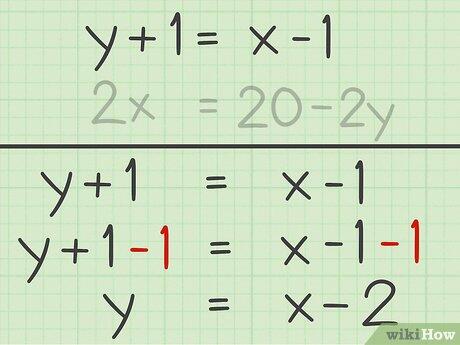 y + 1 = x - 1
2x = 20 - 2y
y + 1 = x - 1
y + 1 - 1 = x - 1 - 1
y = x - 2
wikiHow